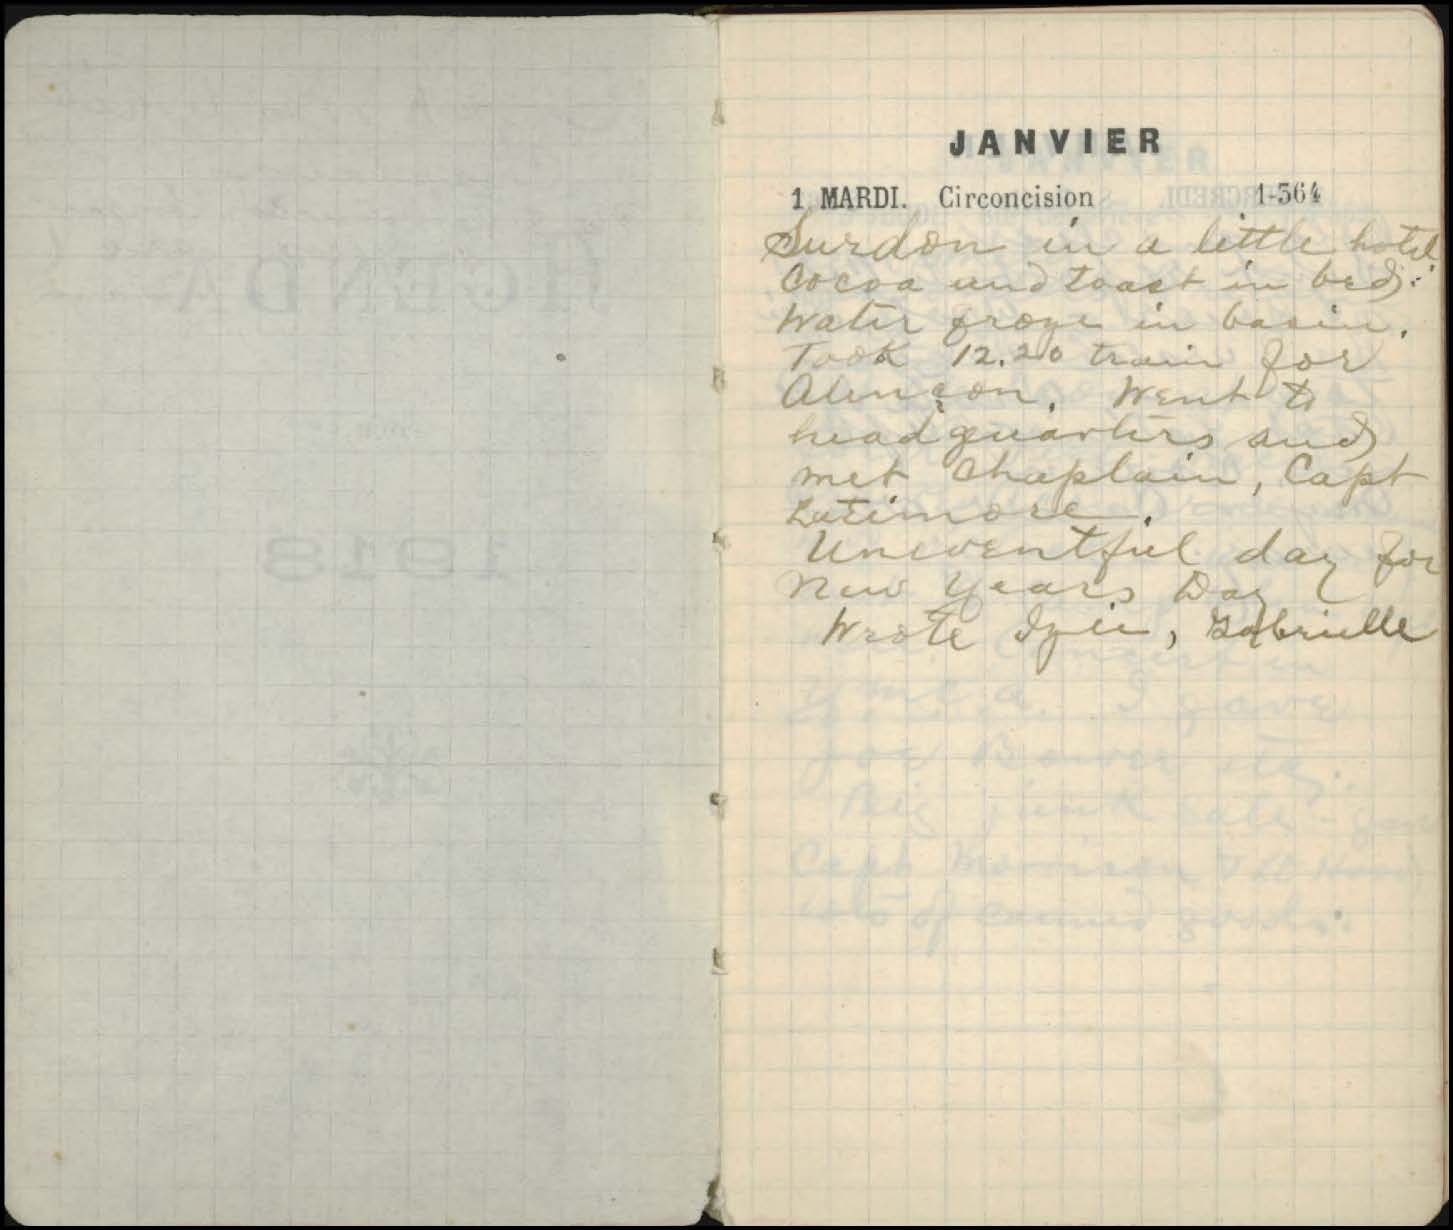 JANVIER
1 MARDI. Circoncision 1-364
Surdon in a little hotel.
Cocoa and toast in bed.
Water froze in basin.
Took 12.20 train for
Alençon. Went to
headquarters and
met Chaplain, Capt
Latimore.
Uneventful day for
New Years Day
Wrote Izie, Gabrielle
AGENDA
1918